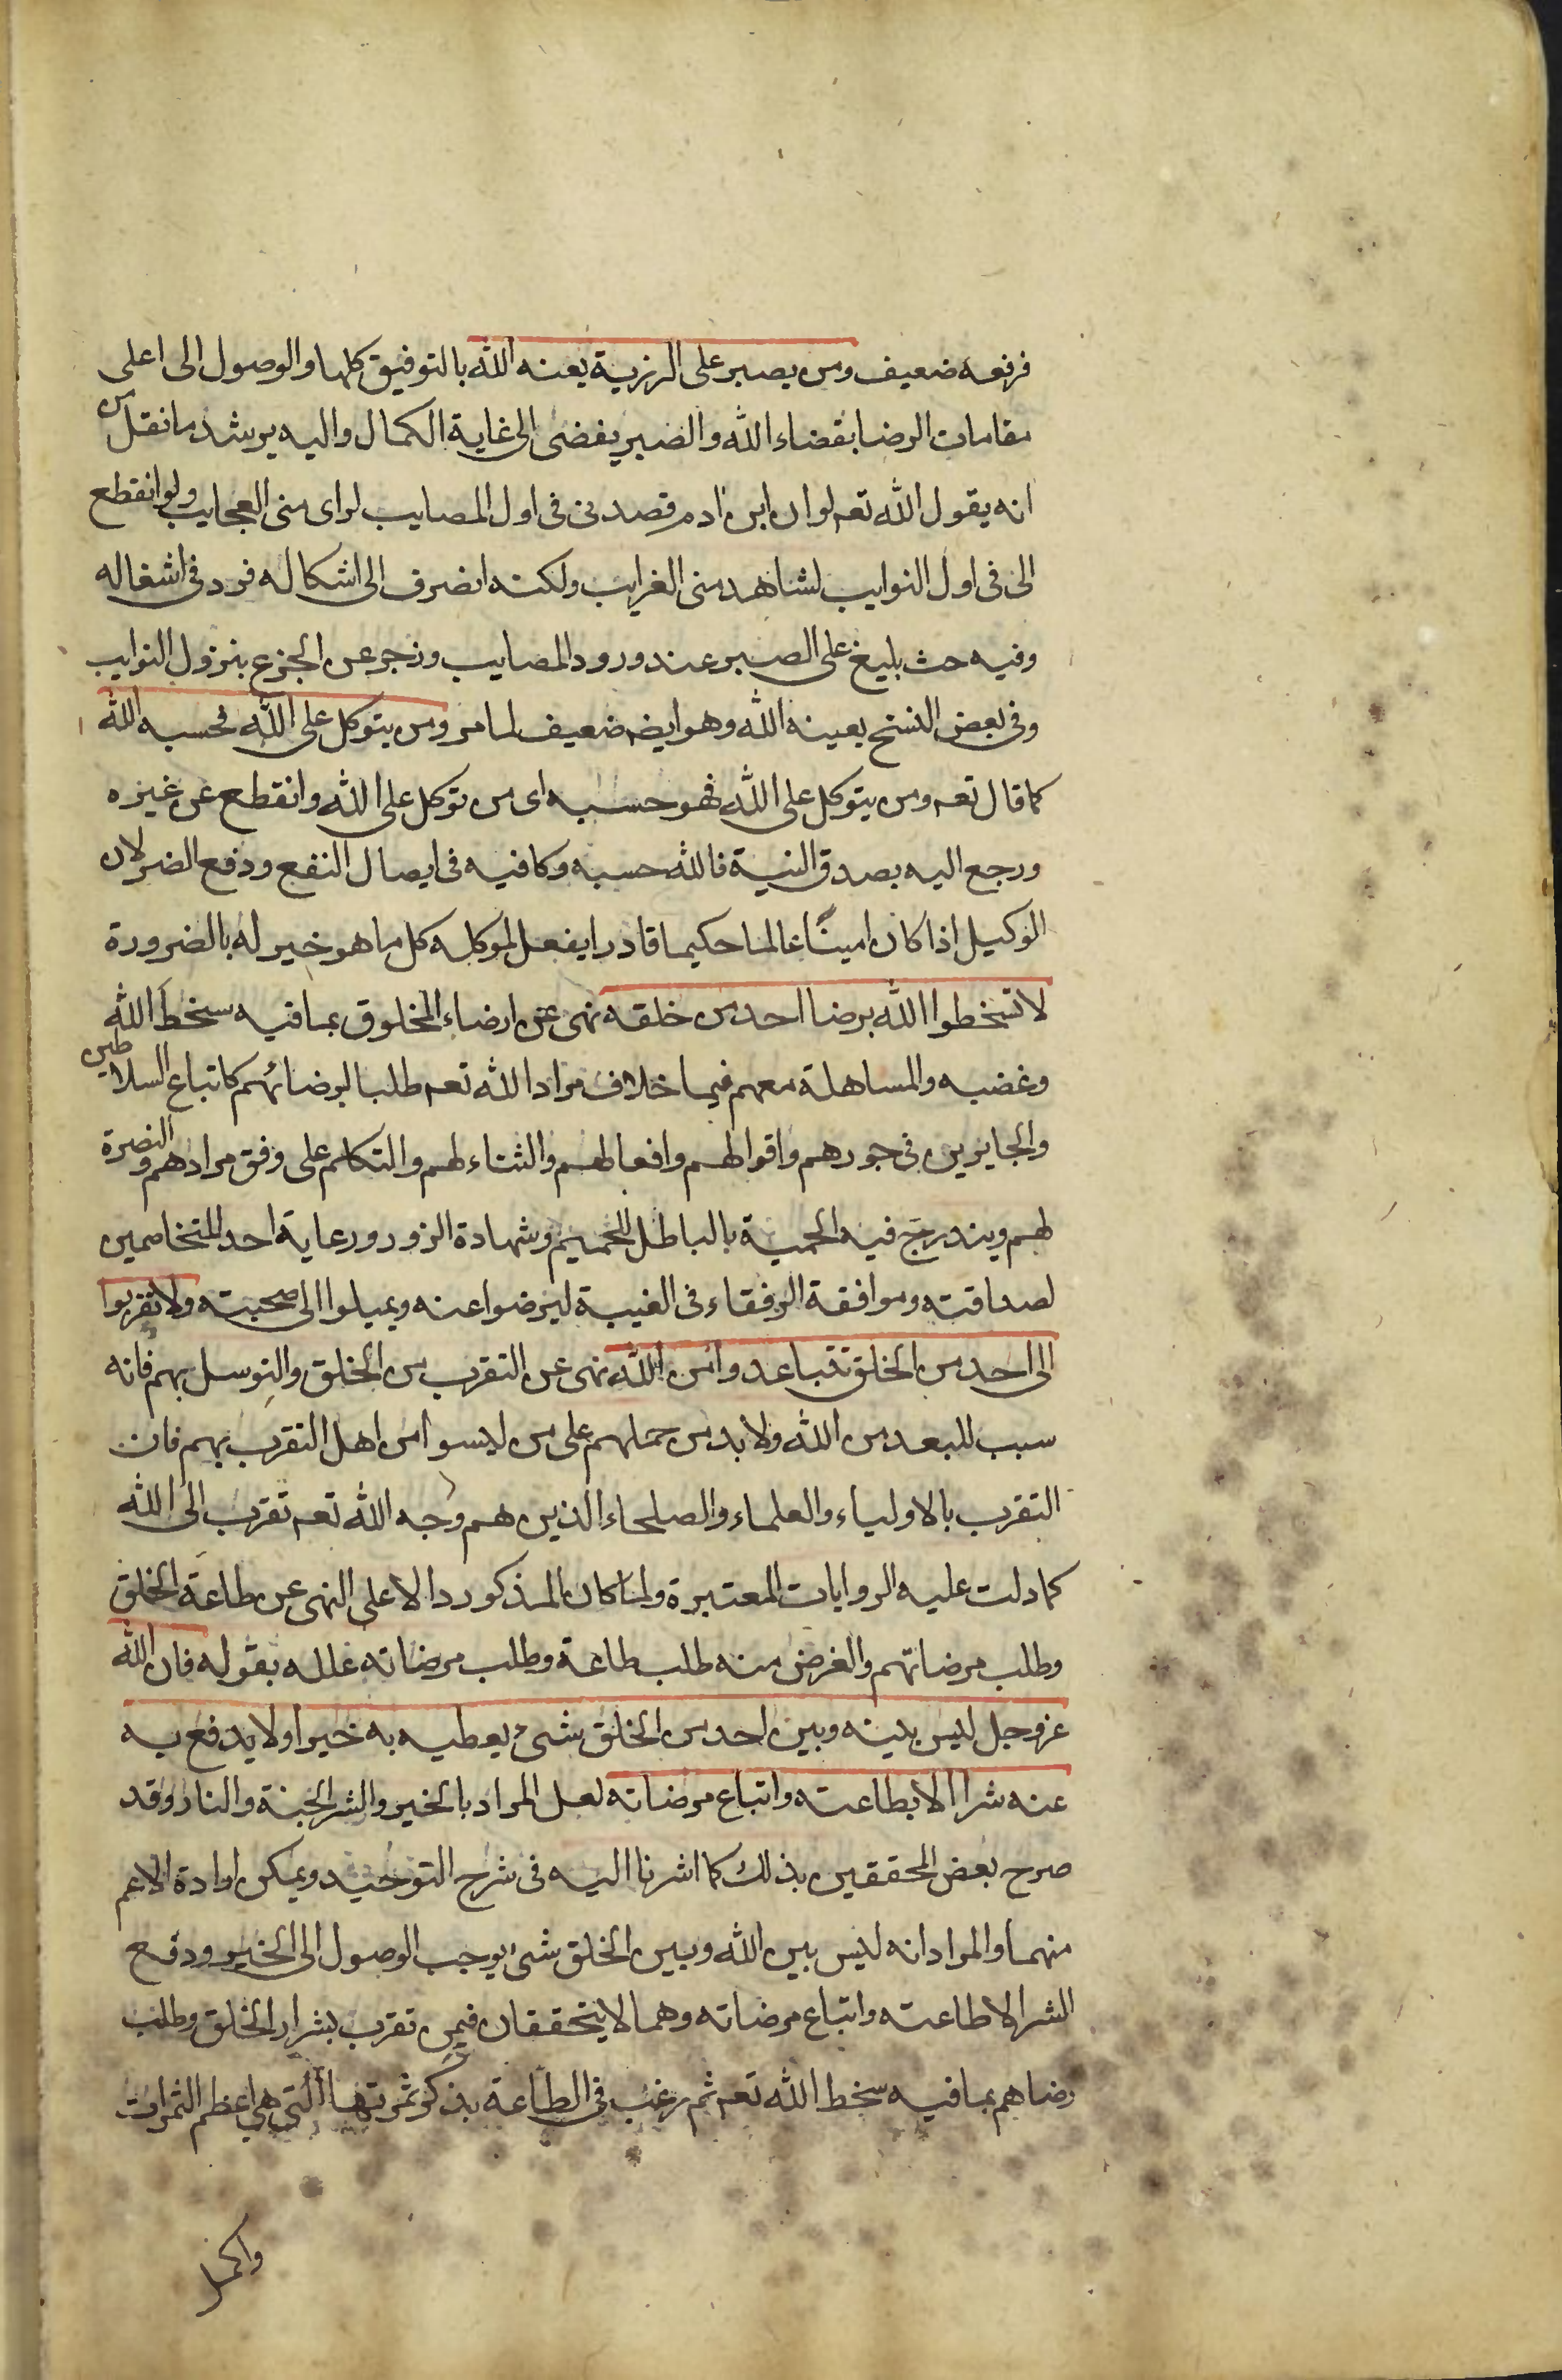 فرفعه ضعيف ومن يصبر على الرزية يعنه الله بالتوفيق كلها والوصول الى اعلى
مقامات الرضا بقضاء الله والصبر يفضى الى غاية الكمال واليه يرشد ما نقل من
انه يقول الله تعه لو ان ابن ادم قصدنى فى اول المصايب لراى منى العجايب ولو انقطع
الى فى اول النوايب لشاهد منى الغرايب ولكنه انصرف الى اشكاله فرد فى اشغاله
وفيه حث بليغ على الصبر عند ورود المصايب وزجر عن الجزع بنزول النوايب
وفى بعض النسخ يعينه الله وهو ايضه ضعيف لما مر ومن يتوكل على الله فحسبه الله
كما قال تعه ومن يتوكل على الله فهو حسبه اى من توكل على الله وانقطع عن غيره
ورجع اليه بصدق النية فالله حسبه وكافيه فى ايصال النفع ودفع الضر لان
الوكيل اذا كان امينًا عالما حكيما قادرا يفعل لموكله كل ما هو خير له بالضرورة
لا تسخطوا الله برضا احد من خلقه نهى عن ارضاء المخلوق بما فيه سخط الله
وغضبه والمساهلة معهم فيما خلاف مراد الله تعه طلبا لرضائهم كاتباع السلاطين
والجايرين فى جورهم واقوالهم وافعالهم والثناء لهم والتكلم على وفق مرادهم والنصرة
لهم ويندرج فيه الحمية بالباطل للحميم وشهادة الزور ورعاية احد المتخاصمين
لصداقته وموافقة الرفقاء فى الغيبة ليرضوا عنه ويميلوا الى صحبته ولا تقربوا
الى احد من الخلق تتباعدوا من الله نهى عن التقرب من الخلق والتوسل بهم فانه
سبب للبعد من الله ولا بد من حملهم على من ليسوا من اهل التقرب بهم فان
التقرب بالاولياء والعلماء والصلحاء الذين هم وجه الله تعه تقرب الى الله
كما دلت عليه الروايات المعتبرة ولما كان المذكور دالا على النهى عن طاعة الخلق
وطلب مرضاتهم والغرض منه طلب طاعة وطلب مرضاته علله بقوله فان الله
عز وجل ليس بينه وبين احد من الخلق شىء يعطيه به خيرا ولا يدفع به
عنه شرا الا بطاعته واتباع مرضاته لعل المراد بالخير والشر الجنة والنار وقد
صرح بعض المحققين بذلك كما اشرنا اليه فى شرح التوحيد ويمكن ارادة الاعم
منهما والمراد انه ليس بين الله وبين الخلق شىء يوجب الوصول الى الخير ودفع
الشر الا طاعته واتباع مرضاته وهما لا يتحققان فيمن تقرب بشرار الخلق وطلب
رضاهم بما فيه سخط الله تعه ثم رغب فى الطاعة بذكر ثمرتها التى هى اعظم الثمرات
واكمل